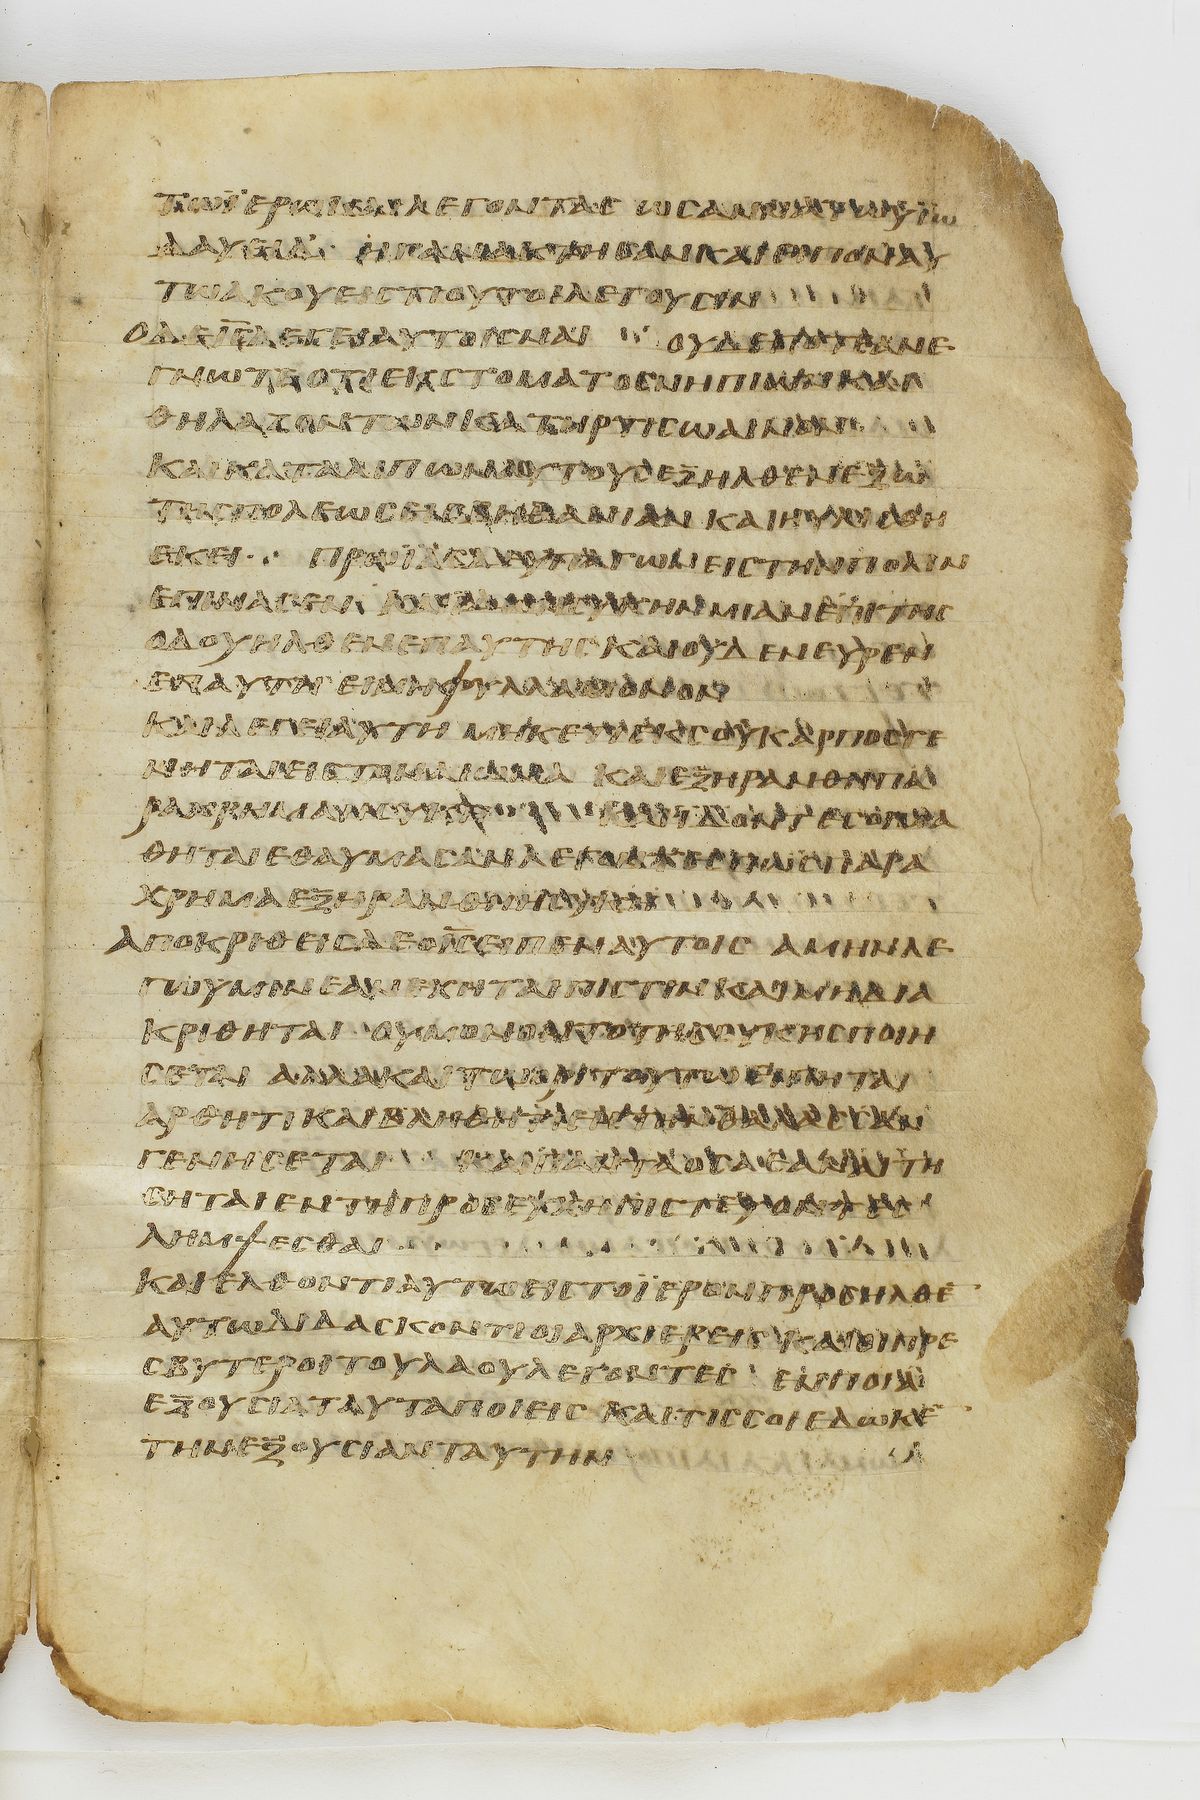 τωϊερωκαιλεγονταс ωсαννατωυϊω
δαυειδ· ηγανακτηсανκαιειποναυ
τωακουειсτιουτοιλεγουсιν
οδειс̅λεγειαυτοιс ναι ουδεποτεανε
γνωτεοτιεκсτοματοсνηπιωνκαι
θηλαζοντωνκατηρτιсωαινον
καικαταλιπωναυτουсεξηλθενεξω
τηсπολεωсειсβηθανιαν καιηυλιсθη
εκει· πρωϊδεεπαναγωνειсτηνπολιν
επινασεν καιιδωνсυκηνμιανεπιτηс
οδουηλθενεπαυτην καιουδενευρεν
εναυτη ειμηφυλλαμονον
καιλεγειαυτη μηκετιεκсουκαρποсγε
νηταιειсτοναιωνα καιεξηρανθηπα
ραχρημαηсυκη καιιδοντεсοιμα
θηταιεθαυμαсανλεγοντεс πωсπαρα
χρημαεξηρανθηηсυκη
αποκριθειсδεοιс̅ειπεναυτοιс αμηνλε
γωυμινεανεχηταιπιсτινκαιμηδια
κριθηται ουμονοντοτηссυκηсποιη
сεται αλλακαντωορειτουτωειπηται
αρθητικαιβληθητιειсτηνθαλαссαν
γενησεται καιπανταοсαεαναιτη
сηταιεντηπροсευχηπιсτευοντεс
λημψεсθαι
καιελθοντιαυτωειсτοϊερονπροсηλθο̅
αυτωδιδαсκοντιοιαρχιερειсκαιοιπρε
сβυτεροιτουλαουλεγοντεс ενποια
εξουсιαταυταποιειс καιτιссοιεδωκε̅
τηνεξουсιανταυτην